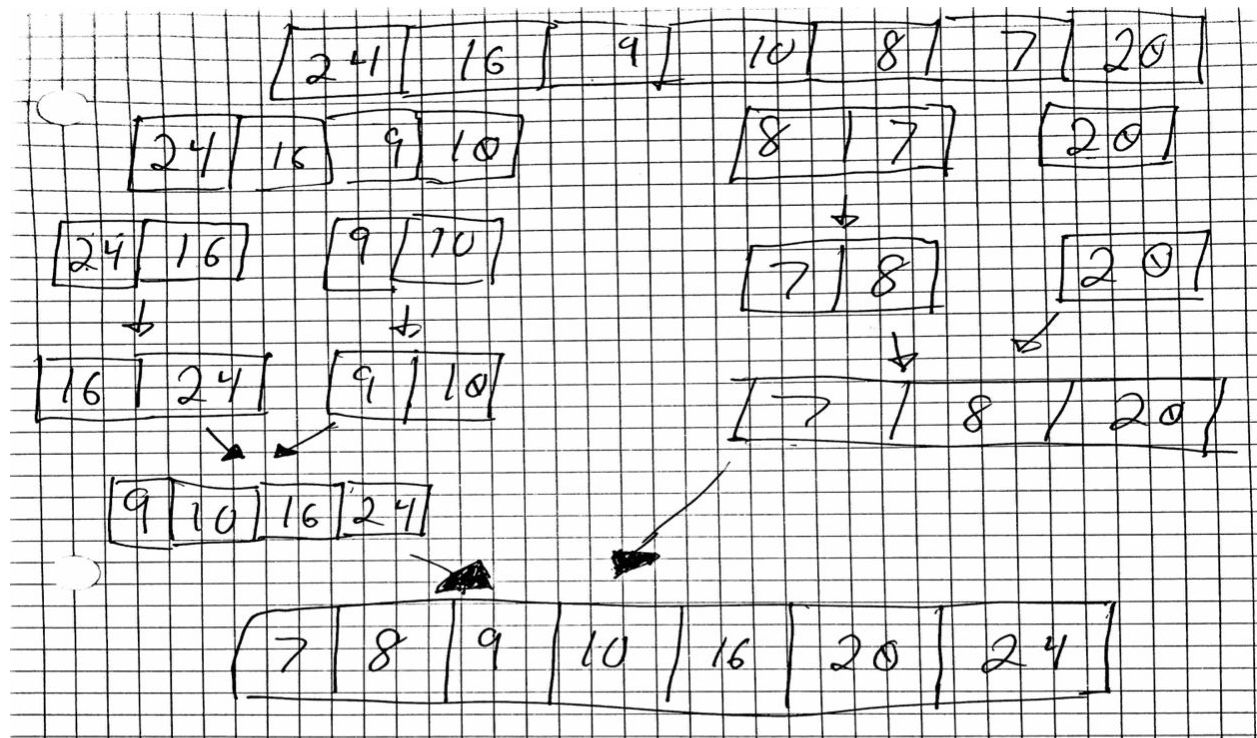 24 16 9 10 8 7 20
24 16 9 10 8 7 20
24 16 9 10 7 8 20
16 24 9 10 7 8 20
9 10 16 24
7 8 9 10 16 20 24